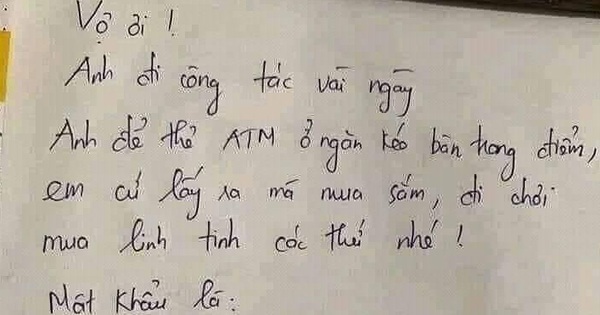 Vợ ơi !
Anh đi công tác vài ngày
Anh để thẻ ATM ở ngăn kéo bàn trang điểm,
em cứ lấy ra mà mua sắm, đi chơi
mua linh tinh các thứ nhé !
Mật khẩu là: